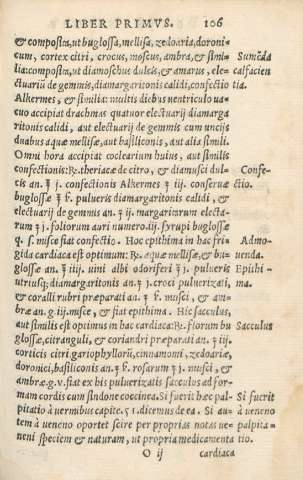 LIBER PRIMVS. 106
& composita, ut buglossa, mellisa, zedoaria, doroni-
cum, cortex citri, crocus, moscus, ambra, & simi- Sumēda
lia: composita, ut diamoschus dulcis, & amarus, ele- calfacien
ctuarii de gemmis, diamargaritonis calidi, confectio tia.
Alkermes, & similia: multis diebus ventriculo va-
cuo accipiat drachmas quatuor electuarij diamarga
ritonis calidi, aut electuarij de gemmis cum uncijs
duabus aquæ mellisæ, aut basiliconis, aut alia simili.
Omni hora accipiat coclearium huius, aut similis
confectionis: ℞. theriacæ de citro, & diamusci dul- Confe-
cis an. ʒ j. confectionis Alkermes ʒ iij. conseruæ ctio.
buglossæ ʒ ß. pulueris diamargaritonis calidi, &
electuarij de gemmis an ʒ ij. margaritarum electa-
rum ʒ j. foliorum auri numero. iij. syrupi buglossæ
q. s. misce fiat confectio. Hoc epithima in hac fri- Admo-
gida cardiaca est optimum: ℞. aquæ mellisæ, & bu- uenda.
glossæ an. ℥ iiij. uini albi odoriferi ℥ j. pulueris Epithi-
utriusq; diamargaritonis an ʒ j. croci puluerizati, ma.
& coralli rubri præparati an. ʒ ß. musci, & am-
bræ an. g iij. misce, & fiat epithema. Hic sacculus,
aut similis est optimus in hac cardiaca: ℞. florum bu Sacculus
glossæ, citranguli, & coriandri præparati an. ʒ iij.
corticis citri gariophyllorū, cinnamomi, zedoariæ,
doronici, basiliconis an. ʒ ß. rosarum ʒ j. musci, &
ambræ g. v. fiat ex his puluerizatis sacculus ad for-
mam cordis cum sindone coccinea. Si fuerit hæc pal- Si fuerit
pitatio à uermibus capite. 51. dicemus de ea. Si au- à ueneno
tem à ueneno oportet scire per proprias notas ue- palpita-
neni speciem & naturam, ut propria medicamenta tio.
O ij cardiaca